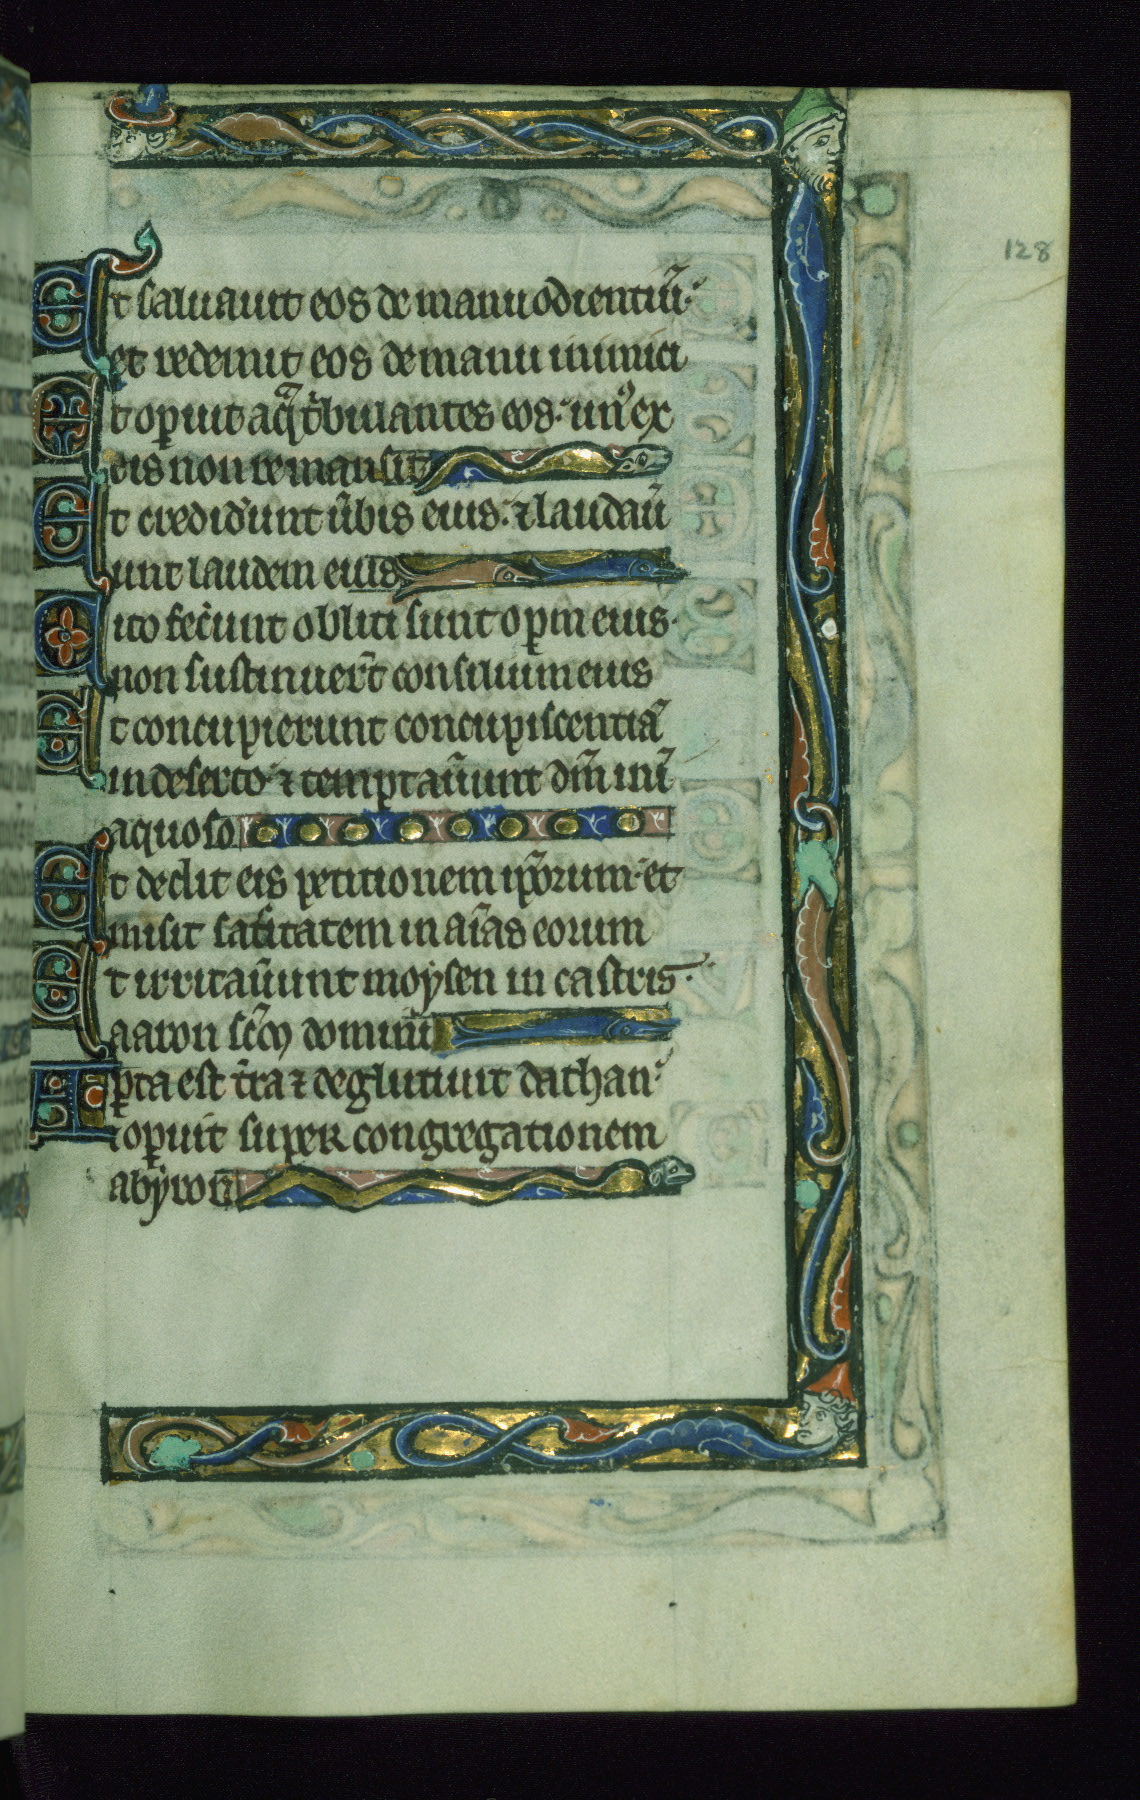 128
Et saluauit eos de manu odientiū·
et redemit eos de manu inimici
Et op̲uit aq̄ t̄bulantes eos· un᷒ ex
eis non remansit
Et credid̾unt ūbis eius· ⁊ laudau̾
unt laudem eius
Cito fec̾unt obliti sunt op̲m eius·
non sustinuer̄t consilium eius
Et concupierunt concupiscentiā
in deserto· ⁊ temptau̾unt dn̄m in ī
aquoso
Et dedit eis petitionem ip̄orum· et
misit sat᷑itatem in aīas eorum
Et irritau̾unt moẏsen in castris·
aaron sc̄m domini
Ap̲ta est t̾ra ⁊ deglutiuit dathan·
⁊ op̲uit super congregationem
abẏron